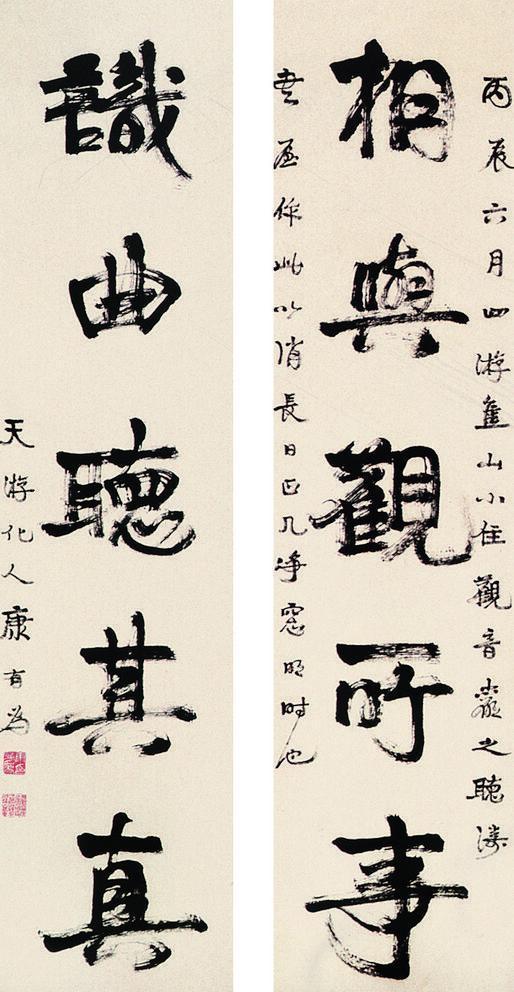 丙辰六月四游焦山小住觀音巖之聽濤
相與觀所事
書屋作此以消長日正几净窓明时也
識曲聽其真
天游化人康有為